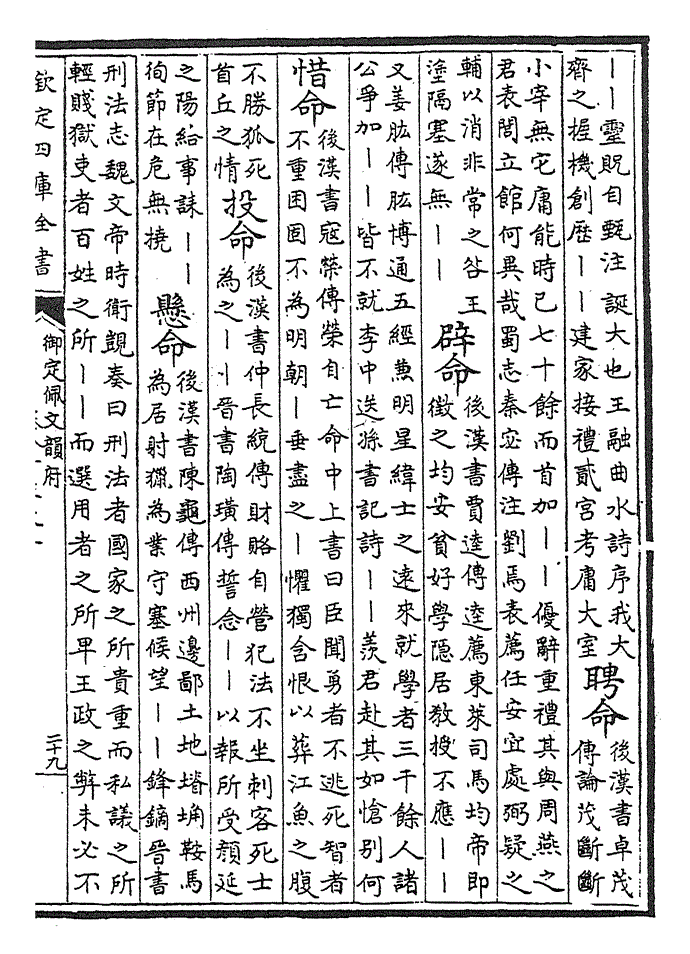 ——靈貺自甄注誕大也王融曲水詩序我大
齊之握機創歷——建家接禮貳宮考庸大室
聘命
後漢書卓茂
傳論茂斷斷
小宰無它庸能時已七十餘而首加——優辭重禮其與周燕之
君表閭立館何異哉蜀志秦宓傳注劉焉表薦任安宜處弼疑之
輔以消非常之咎王
塗隔塞遂無——
辟命
後漢書賈逵傳逵薦東萊司馬均帝即
徵之均安貧好學隱居教授不應——
又姜肱傳肱博通五經兼明星緯士之遠來就學者三千餘人諸
公爭加——皆不就李中送孫書記詩——羨君赴其如愴別何
惜命
後漢書寇榮傳榮自亡命中上書曰臣聞勇者不逃死智者
不重困固不為明朝—垂盡之—懼獨含恨以葬江魚之腹
不勝狐死
首丘之情
投命
後漢書仲長統傳財賂自營犯法不坐刺客死士
為之——晉書陶璜傳誓念——以報所受顏延
之陽給事誄——
徇節在危無撓
懸命
後漢書陳龜傳西州邊鄙土地塉埆鞍馬
為居射獵為業守塞候望——鋒鏑晉書
刑法志魏文帝時衛覬奏曰刑法者國家之所貴重而私議之所
輕賤獄吏者百姓之所——而選用者之所卑王政之弊未必不
欽定四庫全書
御定佩文韻府
二十九